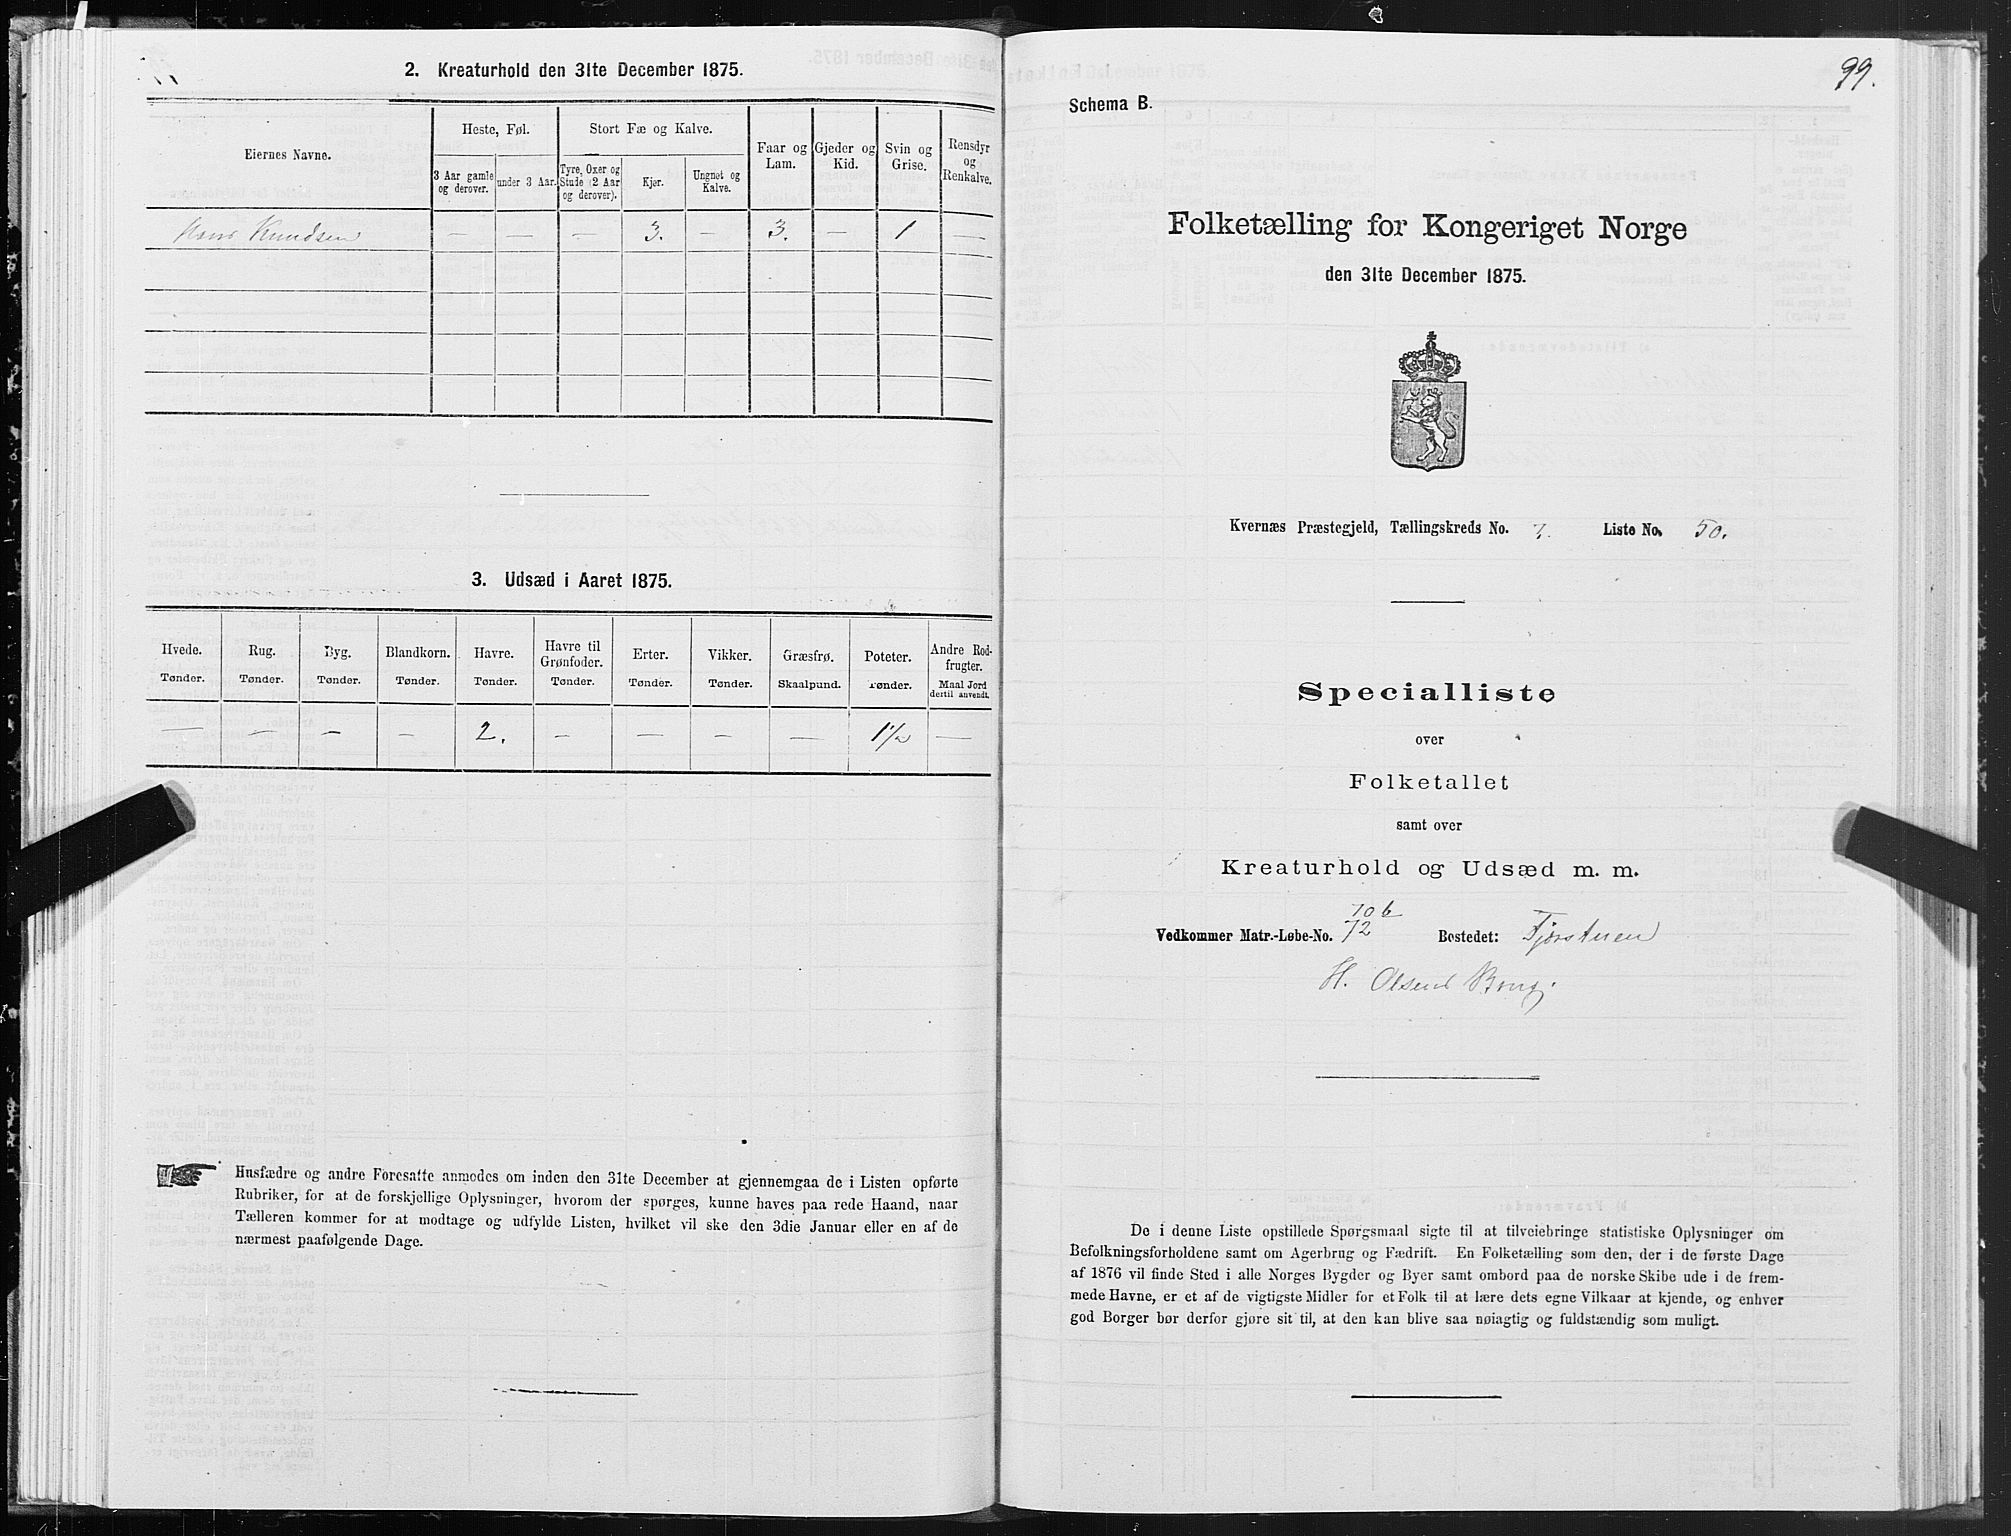 2. Kreaturhold den 31te December 1875.
Eiernes Navne.
Heste, Føl.
Stort Fæ og Kalve.
Faar og Lam.
Gjeder og Kid.
Svin og Grise.
Rensdyr og Renkalve.
3 Aar gamle og derover.
under 3 Aar.
Tyre, Oxer og Stude (2 Aar og derover).
Kjør.
Ungnøt og Kalve.
Hans Knudsen — — — 3. — 3. — 1 —
3. Udsæd i Aaret 1875.
Hvede. Rug. Byg. Blandkorn. Havre. Havre til Grønfoder. Erter. Vikker. Græsfrø. Poteter. Andre Rodfrugter.
Tønder. Tønder. Tønder. Tønder. Tønder. Tønder. Tønder. Tønder. Skaalpund. Tønder. Maal Jord dertil anvendt.
— — — — 2. — — — — 1 1/2 —
Husfædre og andre Foresatte anmodes om inden den 31te December at gjennemgaa de i Listen opførte
Rubriker, for at de forskjellige Oplysninger, hvorom der spørges, kunne haves paa rede Haand, naar
Tælleren kommer for at modtage og udfylde Listen, hvilket vil ske den 3die Januar eller en af de
nærmest paafølgende Dage.
99.
Schema B.
Folketælling for Kongeriget Norge
den 31te December 1875.
Kvernæs Præstegjeld, Tællingskreds No. 7. Liste No. 50.
Specialliste
over
Folketallet
samt over
Kreaturhold og Udsæd m. m.
70 b
Vedkommer Matr.-Løbe-No. 72 Bostedet: Fjørstuen
H. Olsens Brug.
De i denne Liste opstillede Spørgsmaal sigte til at tilveiebringe statistiske Oplysninger om
Befolkningsforholdene samt om Agerbrug og Fædrift. En Folketælling som den, der i de første Dage
af 1876 vil finde Sted i alle Norges Bygder og Byer samt ombord paa de norske Skibe ude i de frem-
mede Havne, er et af de vigtigste Midler for et Folk til at lære dets egne Vilkaar at kjende, og enhver
god Borger bør derfor gjøre sit til, at den kan blive saa nøiagtig og fuldstændig som muligt.